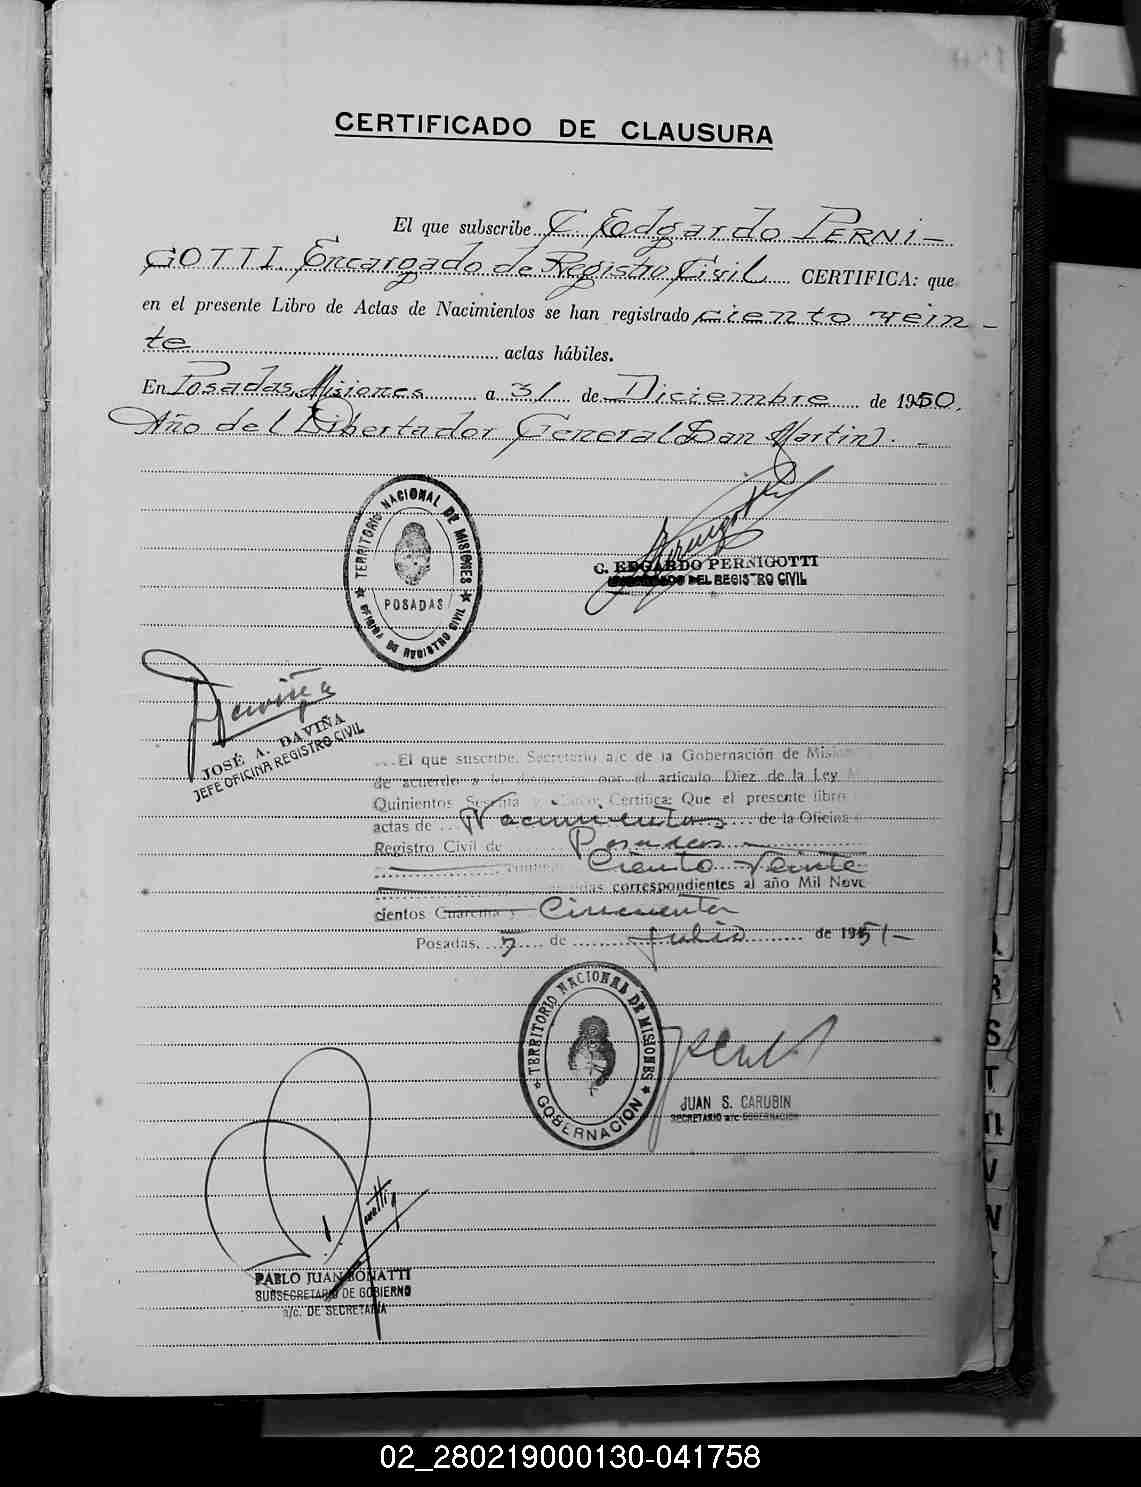 CERTIFICADO DE CLAUSURA
El que subscribe C Edgardo PERNI-
GOTTI Encargado de Registro Civil CERTIFICA: que
en el presente Libro de Actas de Nacimientos se han registrado ciento vein-
te actas hábiles.
En Posadas, Misiones a 31 de Diciembre de 1950.
Año del Libertador General San Martin). -
TERRITORIO NACIONAL DE MISIONES
POSADAS
OFICINA DE REGISTRO CIVIL
C. EDGARDO PERNIGOTTI
DEL REGISTRO CIVIL
Daviña
JOSÉ A. DAVIÑA
JEFE OFICINA REGISTRO CIVIL
El que suscribe, Secretario a/c de la Gobernación de
de acuerdo a lo por el artículo Diez de la Ley
Quinientos Sesenta y Certifica: Que el presente libro
actas de Nacimientos de la Oficina
Registro Civil de Posadas
Ciento Veinte
correspondientes al año Mil Nove
cientos Cuarenta y Cincuenta
Posadas, 5 de Julio de 1951-
TERRITORIO NACIONAL DE MISIONES
GOBERNACION
JUAN S. CARUBIN
SECRETARIO a/c GOBERNACION
PABLO JUAN BONATTI
SUBSECRETARIO DE GOBIERNO
a/c. DE SECRETARIA
R
S
T
V
02_280219000130-041758